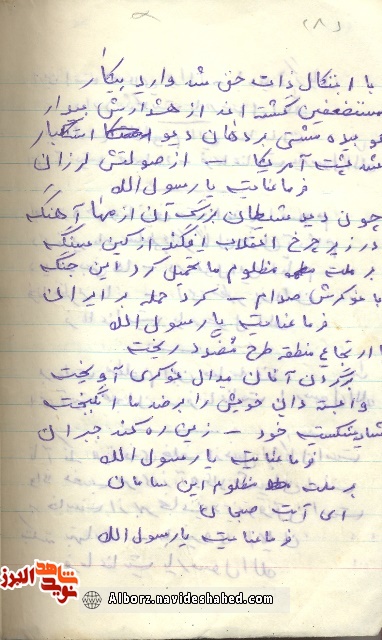 (۲۸)
با اتکال ذات حق شد وارد پیکار
مستضعفین گشته اند از هشدارش بیدار
کوبیده مشتی بر دهان دیو استکبار
شد پشت آمریکا - از صولتش لرزان
فرما عنایت یا رسول الله
چون دید شیطان بزرگ آن از مها آهنگ
در زیر چرخ انقلاب افکند از کین سنگ
بر ملت مظلوم ما تحمیل کرد این جنگ
با نوکرش صدام - کرد حمله بر ایران
فرما عنایت یا رسول الله
ارتجاع منطقه طرح مضد ریخت
بر گردن آنان مدال نوکری آویخت
وابسته دانی خویش را بر ضد ما انگیخت
شاید شکست خود - زین ره کند جبران
فرما عنایت یا رسول الله
بر ملت مظلوم این سامان
ای آیت
فرما عنایت یا رسول الله
شاهد
نوید
البرز
Alborz.navideshahed.com